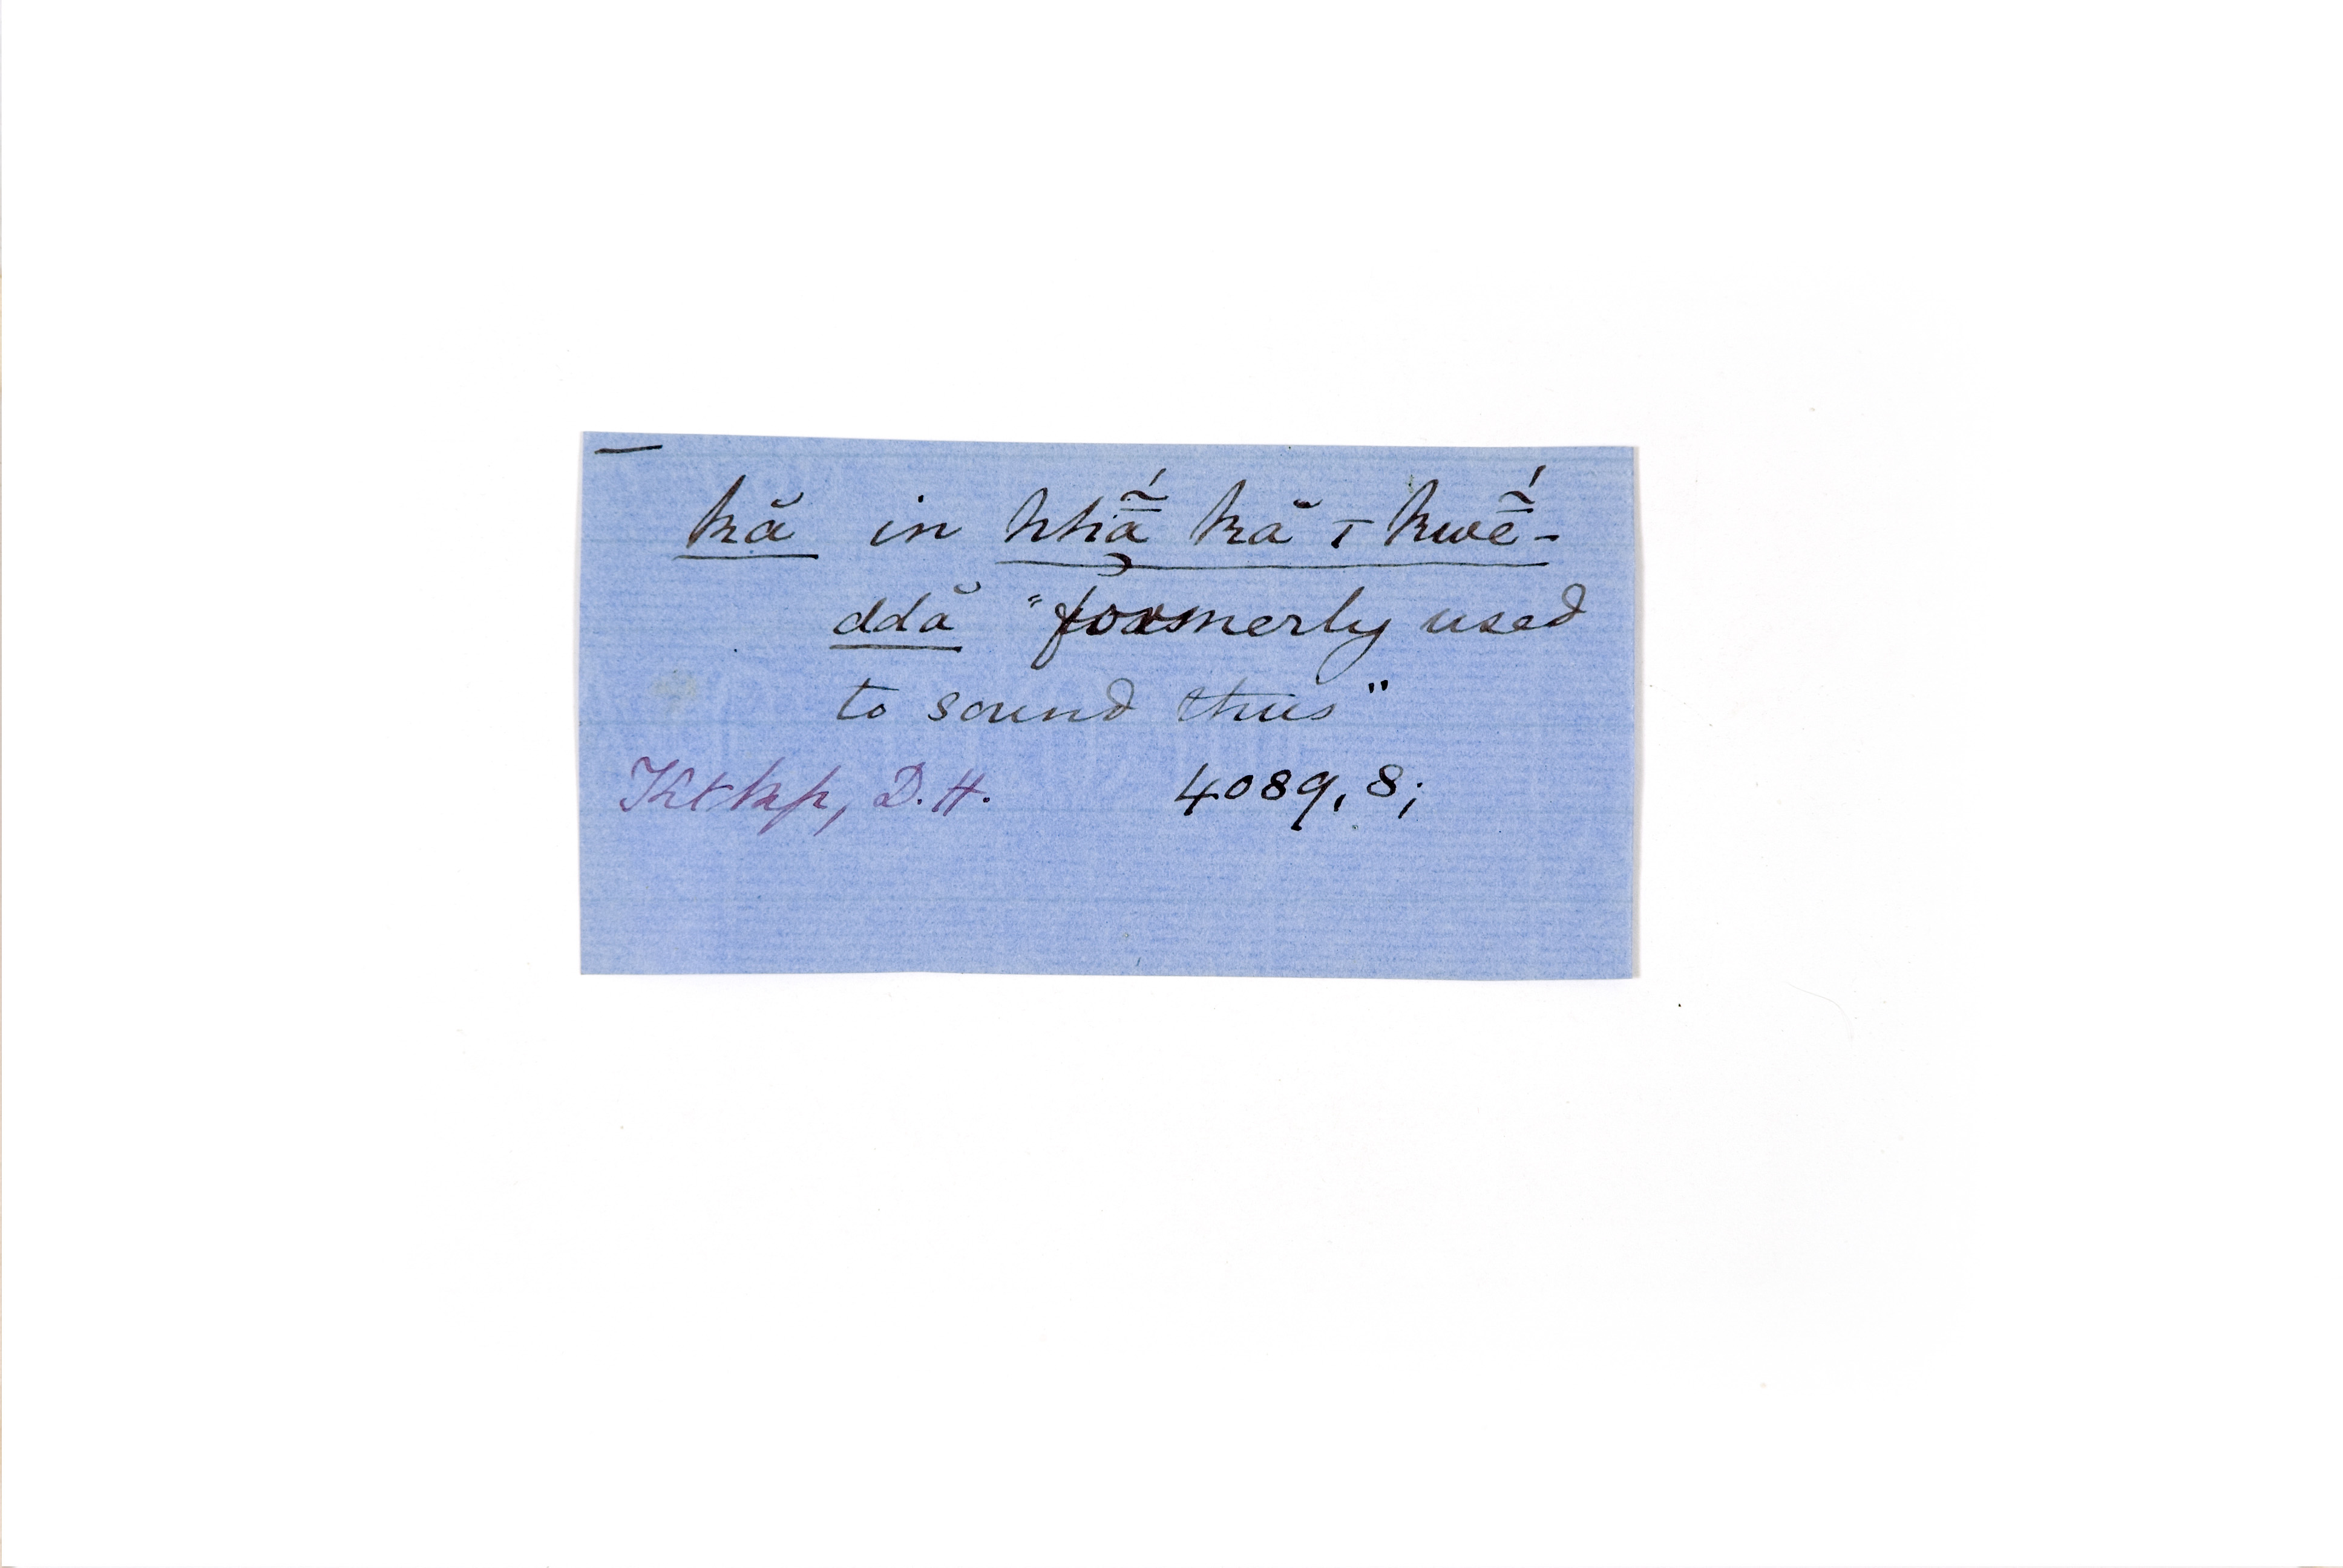 —
kă in hhā̰́ kă ⊤ kwḗ̃-
ddă "formerly used
to sound thus"
Ktkkp, D.H. 4089, 8;